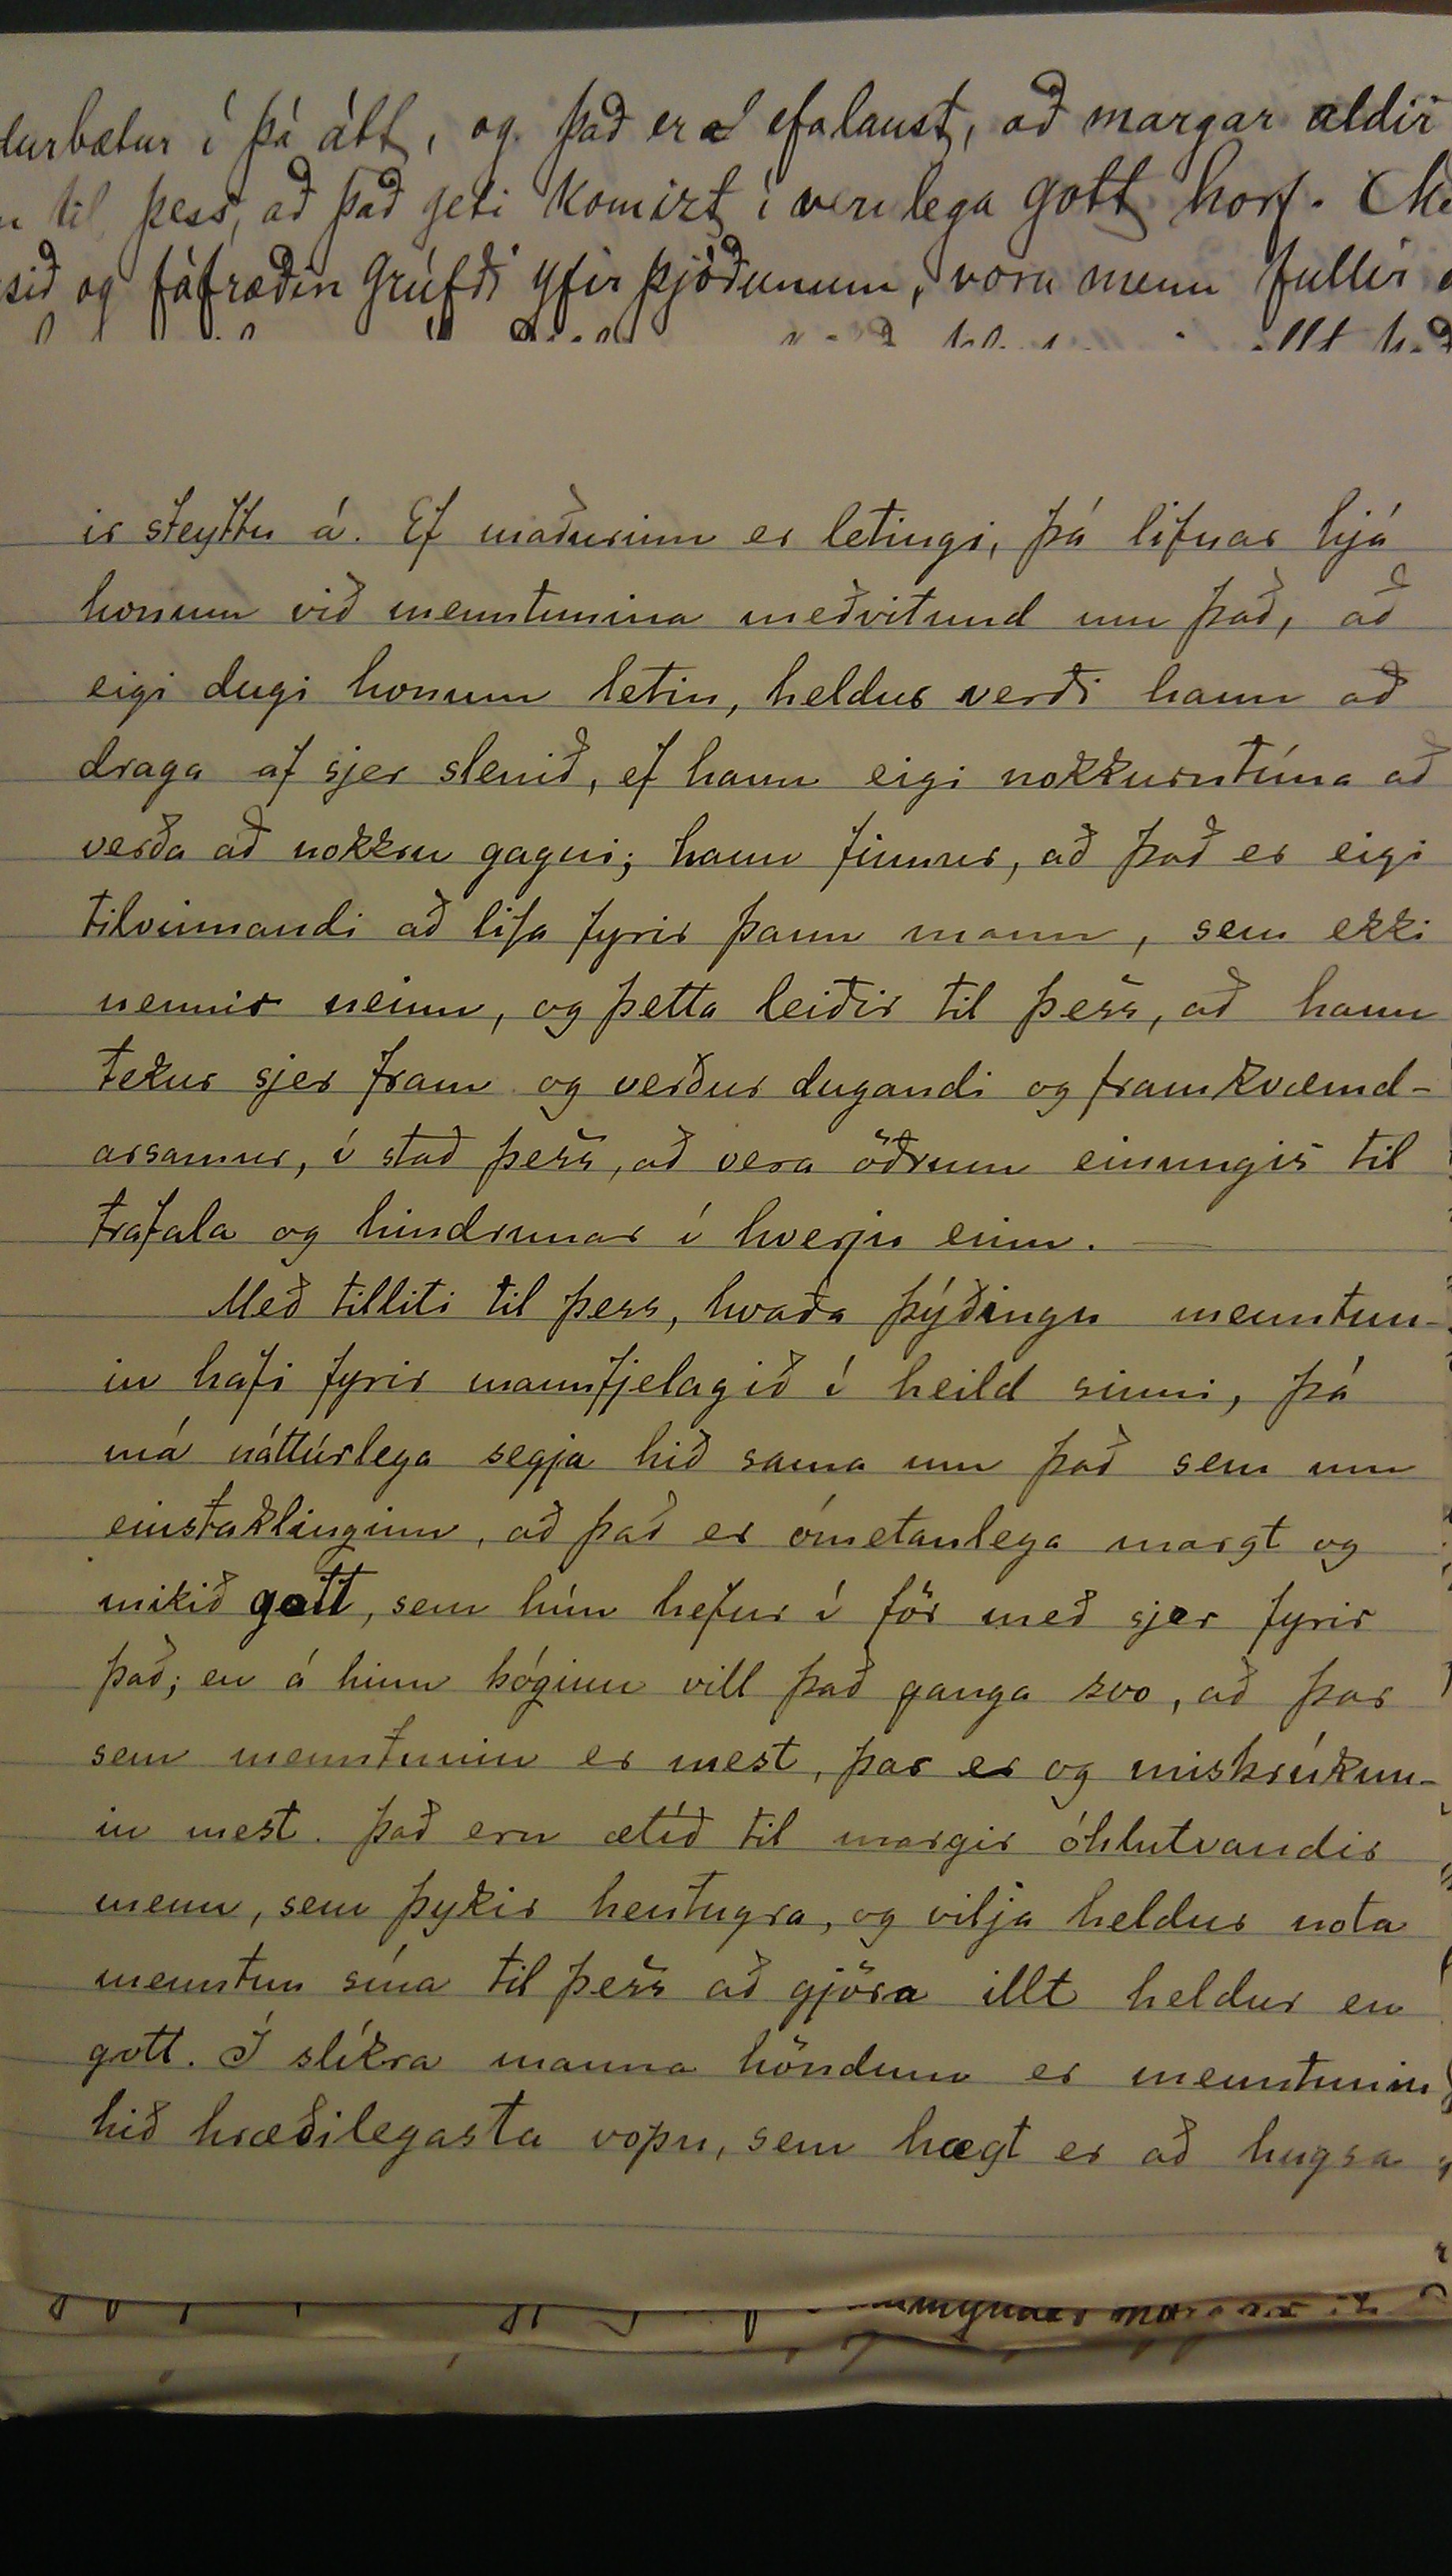 urbætur í þá átt, og það er efalaust, að margar aldir
til þess, að það geti komizt í verulega gott horf.
og fáfræðin grúfði yfir þjóðunum, voru menn fullir
ir steyttu á. Ef maðurinn er letingi, þá lifnar hjá
honum við menntunina meðvitund um það, að
eigi dugi honum letin, heldur verði hann að
draga af sjer slenið, ef hann eigi nokkurntíma að
verða að nokkru gagni; hann finnur, að það er eigi
tilvinnandi að lifa fyrir þann mann, sem ekki
nennir neinu, og þetta leiðir til þess, að hann
tekur sjer fram og verður dugandi og framkvæmd-
arsamur, í stað þess, að vera öðrum einungis til
trafala og hindrunar í hverju einu. —
Með tilliti til þess, hvaða þýðingu menntun-
in hafi fyrir mannfjelagið í heild sinni, þá
má náttúrlega segja hið sama um það sem um
einstaklinginn, að það er ómetanlega margt og
mikið gott, sem hún hefur í för með sjer fyrir
það; en á hinn bóginn vill það ganga svo, að þar
sem menntunin er mest, þar er og misbrúkun-
in mest. Það eru ætíð til margir óhlutvandir
menn, sem þykir hentugra, og vilja heldur nota
menntun sína til þess að gjöra illt heldur en
gott. Í slíkra manna höndum er menntunin
hið hræðilegasta vopn, sem hægt er að hugsa